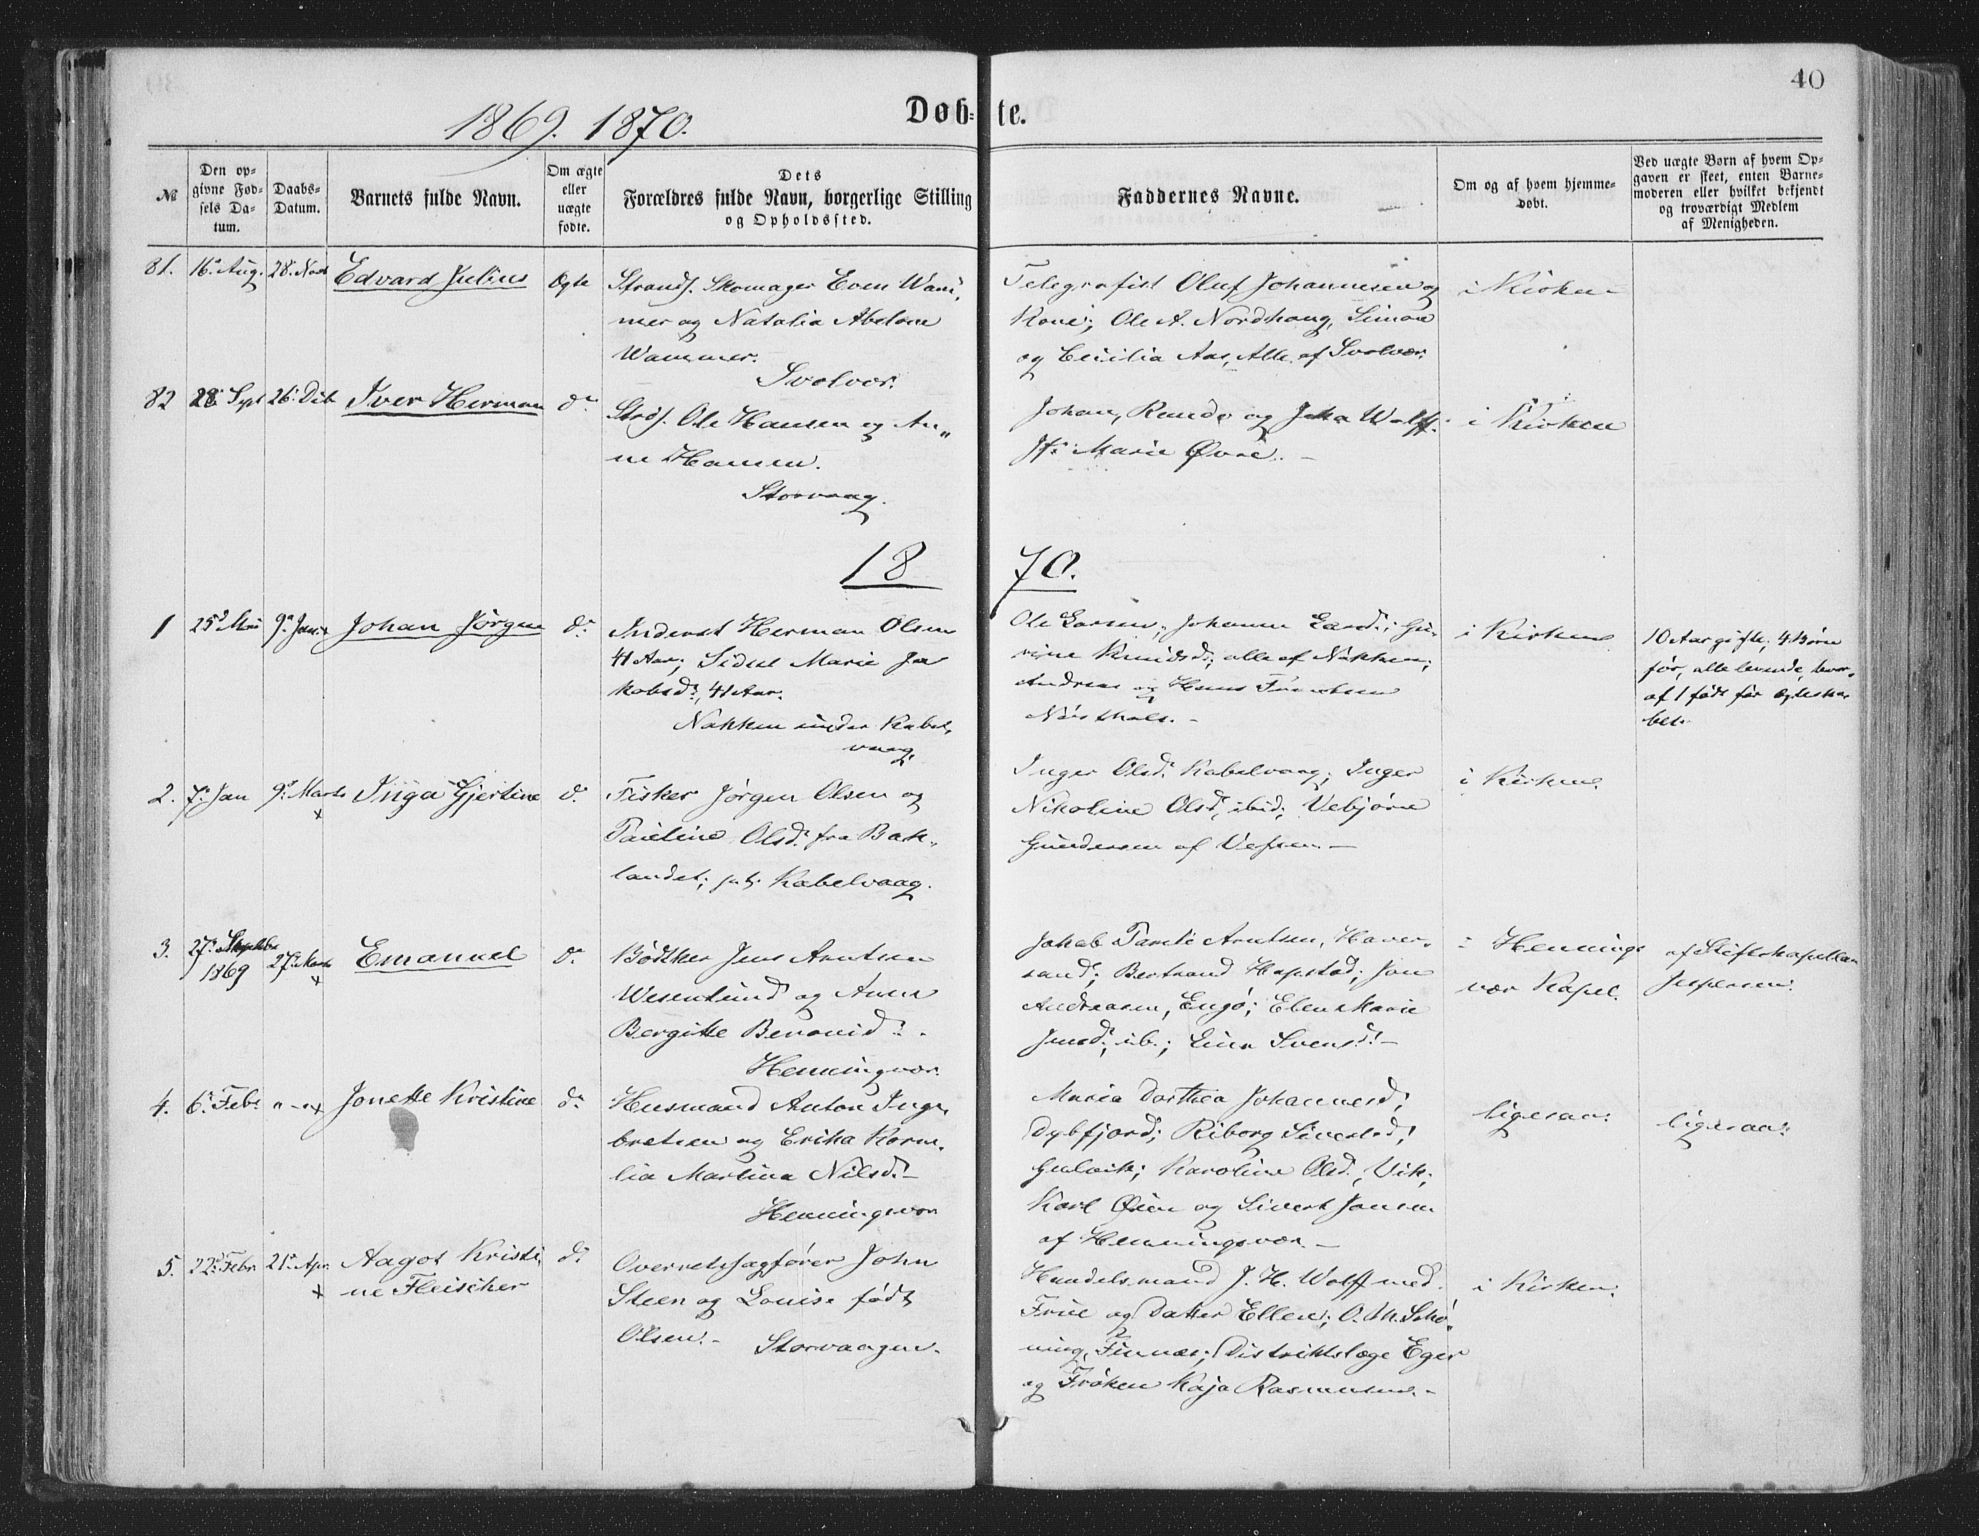 40
1869. 1870.
Døb-te.
№
Den opgivne Fødsels Datum.
Daabs-Datum.
Barnets fulde Navn.
Om ægte eller uægte fødte.
Dets Forældres fulde Navn, borgerlige Stilling og Opholdssted.
Faddernes Navne.
Om og af hvem hjemmedøbt.
Ved uægte Børn af hvem Opgaven er skeet, enten Barnemoderen eller hvilket bekjendt og troværdigt Medlem af Menigheden.
81. 16. Aug. 28. Nov Edvard Julius Ægte
Strands. Skomager Even Wam-
mer og Natalia Abelone
Wammer.
Svolvær.
Telegrafist Oluf Johannesen og
Kone; Ole A. Nordhaug, Simon
og Cecilia Aas, Alle af Svolvær.
i Kirken
82 28. Sept 26. Deb Iver Herman do
Strds. Ole Hansen og An-
ne Hansen.
Storvaag.
Johan, Rende og Jeha Wolff.
Jfr Marie Øvre.
i Kirken
1870.
1 25 Mai 9. Jan. Johan Jørgen do
Inderst Herman Olsen
41 Aar; Sidsel Marie Ja
kobsd. 41 Aar.
Nakken under Kabel-
vaag.
Ole Larsen; Johanne Larsd.; Gu-
rine Knudsd; alle af Nakken;
Andreas og Hans
i Kirken
10 Aar gifte; 4 Børn
før, alle levende, hvor-
af 1 født før Ægteska-
bet.
2. 7. Jan 9. Marts x Inga Gjertine do
Fisker Jørgen Olsen og
Pauline Olsd. fra Bak-
landet; Kabelvaag.
Inger Olsd. Kabelvaag; Inger
Nikoline Olsd, ibid; Vebjørn
Gundersen af Vefsen.
i Kirken.
3. 27. 1869 27. Marts x Emanuel do
Bødtker Jens Arntsen
Wesenlund og Anna
Bergitte Benonid.
Henningvær.
Jakob Arntsen, Haver-
sand; Bertrand Hopstad; Jon
Andreasen, Engø; Ellen Marie
Jensd., ib.; Svensd.
i Hennings
vær Kapel.
af Stiftskapellan
Jespersen.
4. 6. Febr " - " x Jonette Kristine do
Husmand Anton Inge-
bretsen og Erika Korne-
lia Martina Nilsd.
Henningsvær
Maria Dorthea Johannesd;
Dybfjord; Riborg Sivertsd,
Gulvik; Karoline Olsd., Vik;
Karl Øien og Sivert Jansen
af Henningsvær.
ligesaa:
ligesaa:
5. 22. Febr 21. Apr. x Aagot Kristi-
ne Fleischer do
Overretssagfører John
Steen og Louise født
Olsen.
Storvaagen.
Handelsmand J. H. Wolff med
Frue og Datter Ellen; O. M. Schø-
ning, Finnæs; Distriktslæge Eger
og Frøken Kaja Rasmussen.
i Kirken.